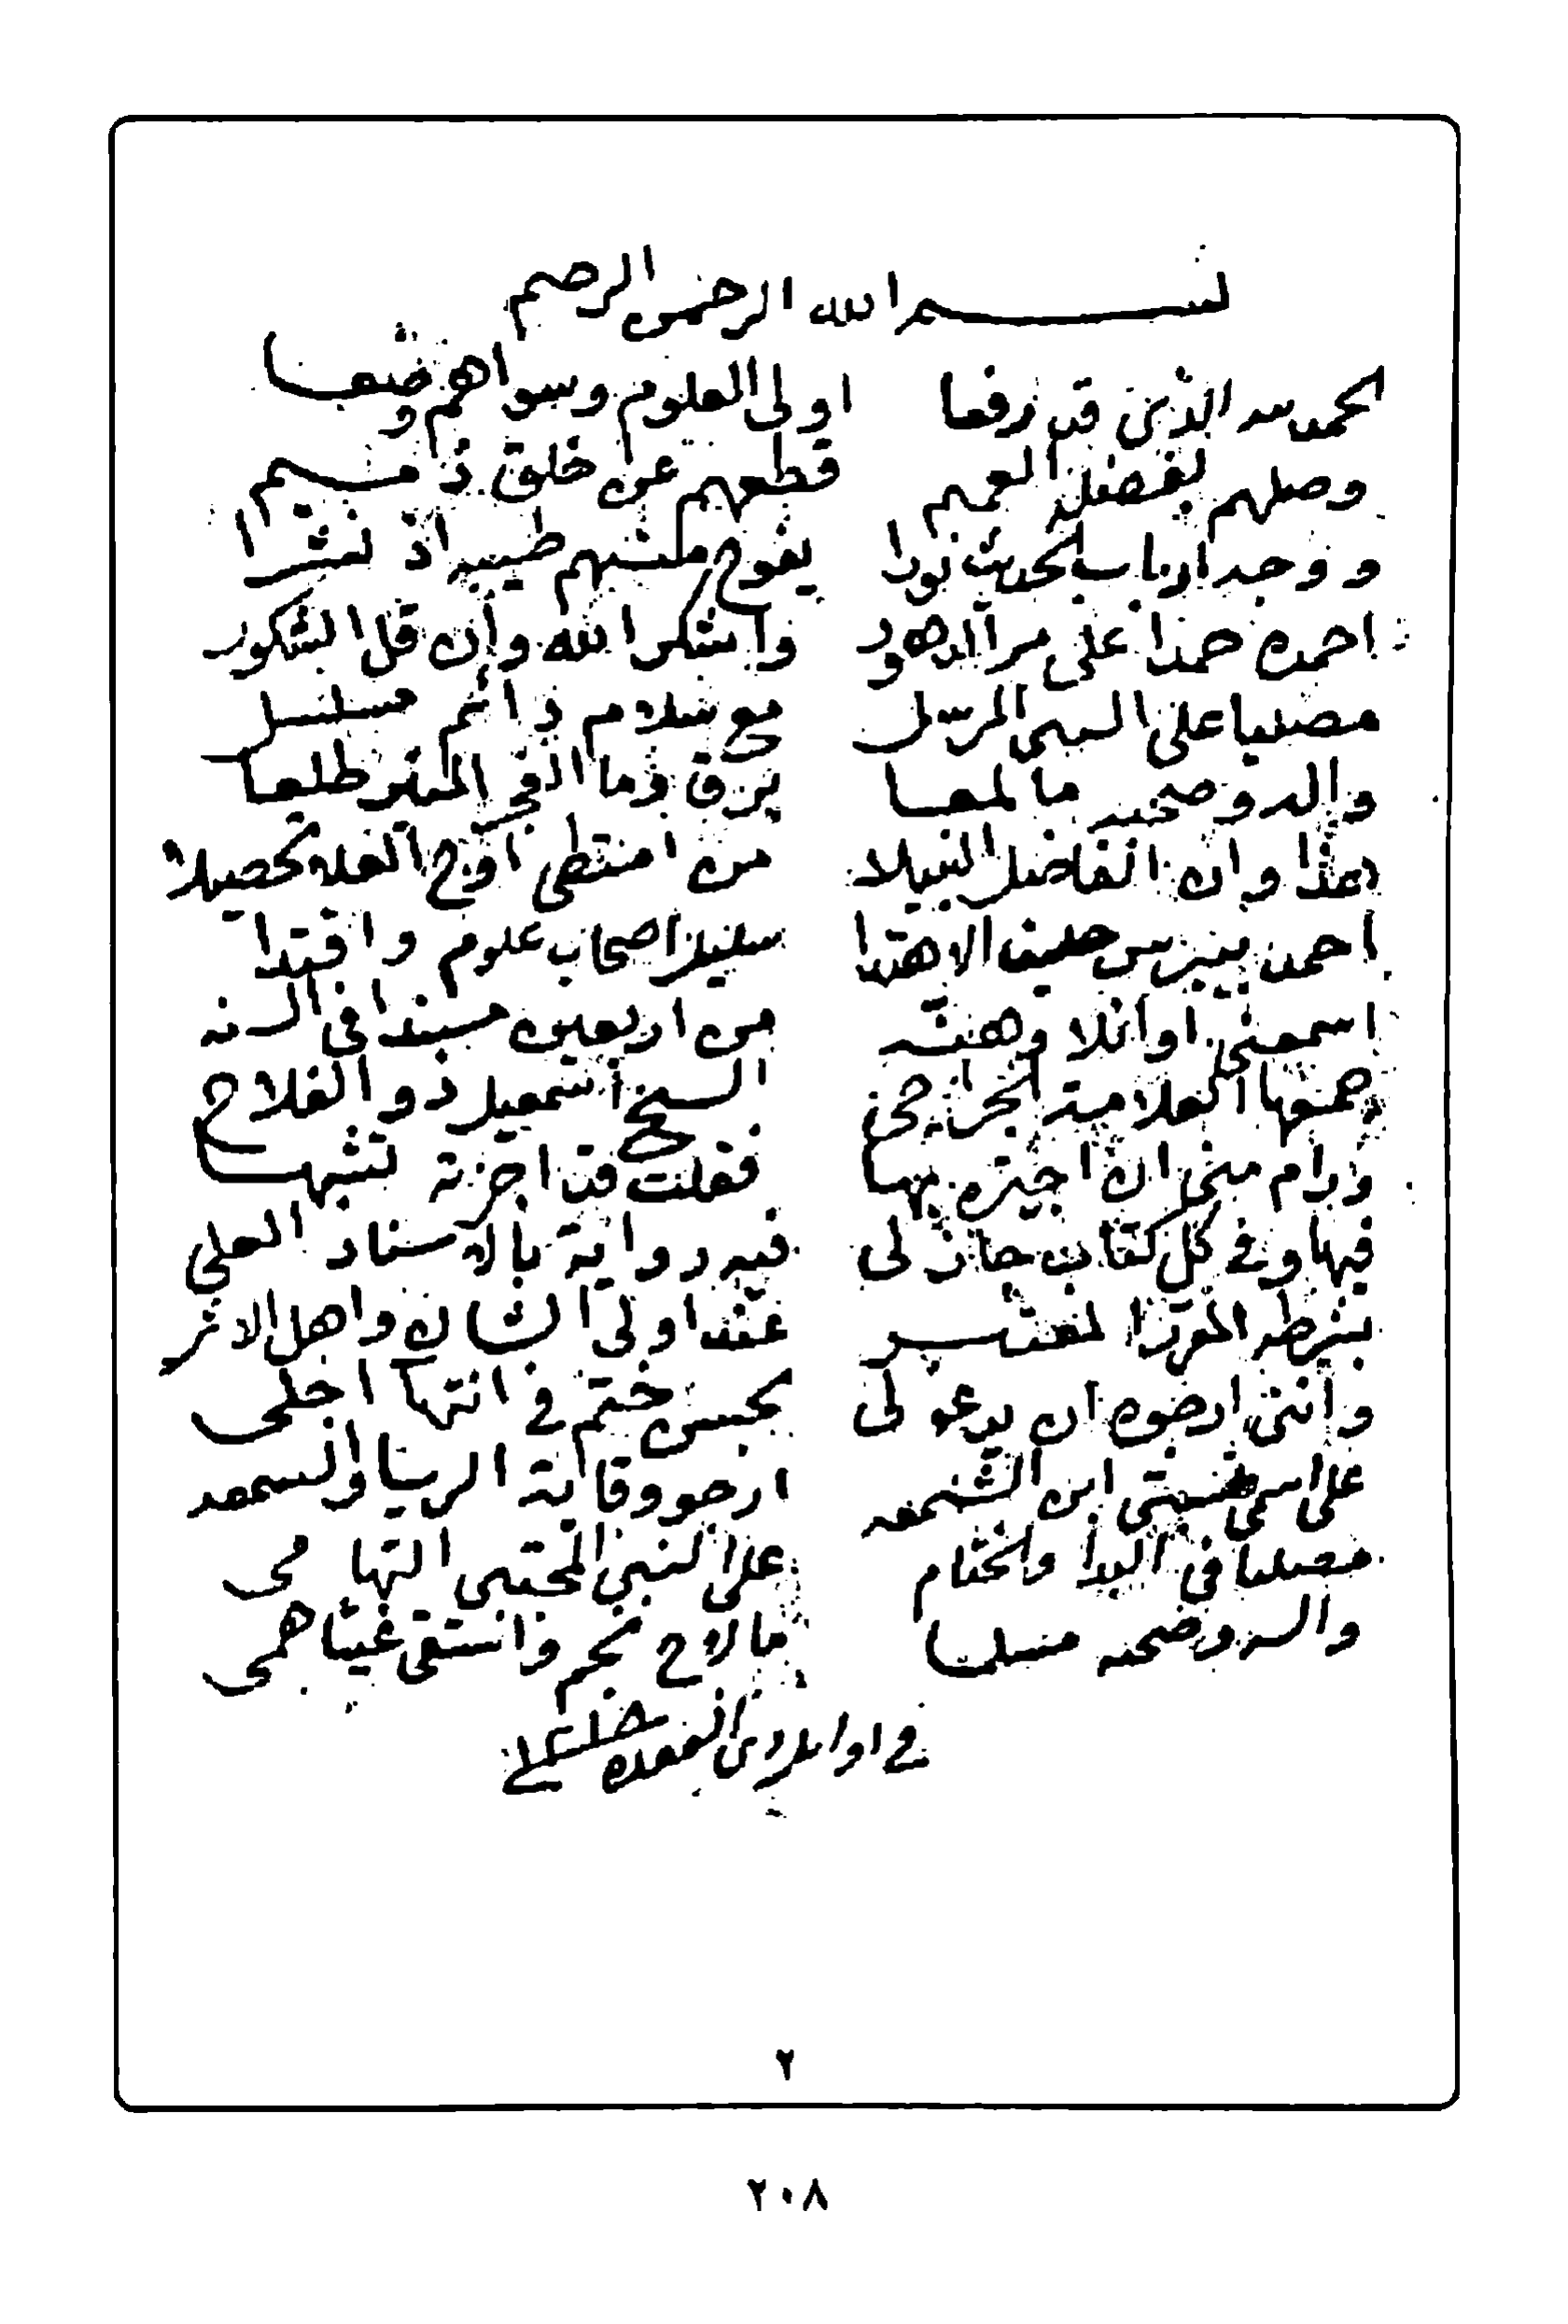 بسم الله الرحمن الرحيم
الحمد لله الذي قد رفعا اولى العلوم وسواهم وضعا
وصلهم بفضله العميم قطعهم عن خلق ذميم
ووجه ارباب الحديث نورا يفوح منهم طيب اذ نشرا
احمده حمدا على مر الدهور واشكر الله وان قل الشكور
مصليا على النبي المرسل مع سلام دائم مسلسل
واله وصحبه ما لمعا برق وما الفجر المنير طلعا
هذا وان الفاضل النبيلا من امتطى اوج العلا تحصيلا
احمد بيبرس حليف الاهتدا سليل اصحاب علوم واقتدا
اسمعني اوائلا وهنه من اربعين مسندا في السنه
جمعها العلامة الجراحي الشيخ اسمعيل ذو الفلاح
ورام مني ان اجيزه بها فقلت قد اجزته تشبها
فيها وفي كل كتاب جاز لي فيه رواية بالاسناد العلي
بشرطه المقرر المعتبر عند اولى الشان واهل الاثر
وانني ارجوه ان يدعو لي بحسن ختم في انتها اجلي
على اسمي ابن الشمعه ارجو وقاية الريا والسمعه
مصليا في البدأ والختام على النبي المجتبى التهامي
واله وصحبه مسلما ما لاح نجم واستقى غيثا همى
في اوائل ذي القعدة
٢
٢٠٨